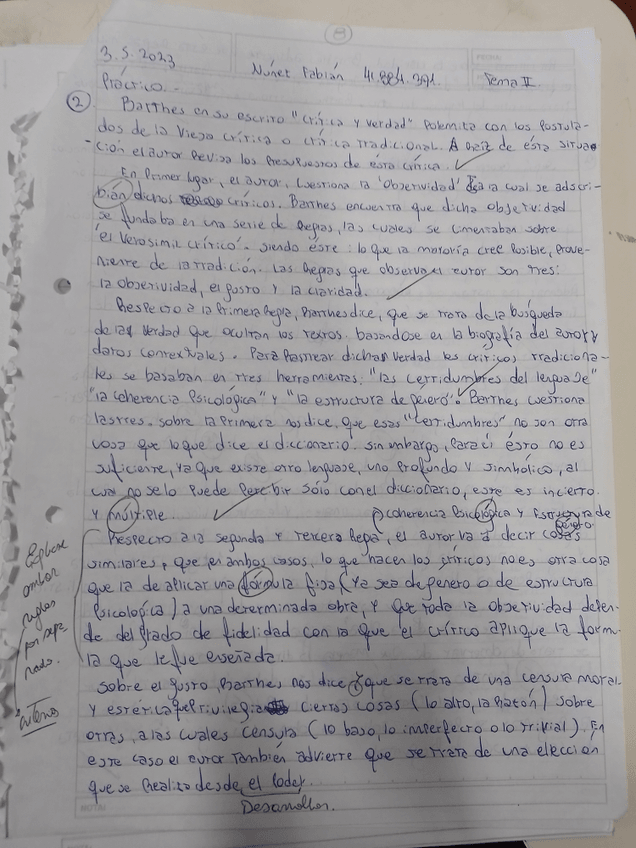 3.5.2023
Núñez Fabián 41.884.391. Tema II
Práctico.
② Barthes en su escrito "crítica y verdad" Polemiza con los Postula-
dos de la Vieja crítica o crítica tradicional. A raíz de esta situa
-ción el autor Revisa los Presupuestos de esta crítica.
En Primer lugar, el autor, cuestiona la 'Objetividad' a la cual se adscri-
bían dichos críticos. Barthes encuentra que dicha objetividad
se fundaba en una serie de Reglas, las cuales se cimentaban sobre
el Verosimil crítico. siendo éste: lo que la mayoría cree Posible, Prove-
niente de la tradición. Las Reglas que observa el autor son tres:
la objetividad, el gusto y la claridad.
Respecto a la Primera Regla, Barthes dice, que se trata de la búsqueda
de la verdad que ocultan los textos. basandose en la biografía del autor y
datos contextuales. Para Rastrear dicha Verdad los críticos tradiciona-
les se basaban en tres herramientas: "las certidumbres del lenguaje"
"la coherencia Psicológica" y "la estructura de género". Barthes cuestiona
las tres. sobre la Primera nos dice, que esas "certidumbres" no son otra
cosa que lo que dice el diccionario. sin embargo, Para él ésto no es
suficiente, ya que existe otro lenguaje, uno Profundo y simbólico, al
cual no se lo Puede Percibir sólo con el diccionario, este es incierto
y múltiple.
coherencia Psicológica y Estructura de género.
Respecto a la segunda y tercera Regla, el autor va a decir cosas
similares, que en ambos casos, lo que hacen los críticos no es otra cosa
que la de aplicar una formula fija (ya sea de genero o de estructura
Psicológica) a una determinada obra, y que toda la objetividad depen-
de del grado de fidelidad con la que el crítico aplique la formu-
la que le fue enseñada.
Explicar
ambas
reglas
por sepa
rado.
Sobre el gusto, Barthes nos dice que se trata de una censura moral
y estética que Privilegia ciertas cosas (lo alto, la Razón) sobre
otras, a las cuales censura (lo bajo, lo imperfecto o lo trivial). En
este caso el autor también advierte que se trata de una elección
que se Realiza desde el Poder.
Desarrollar.